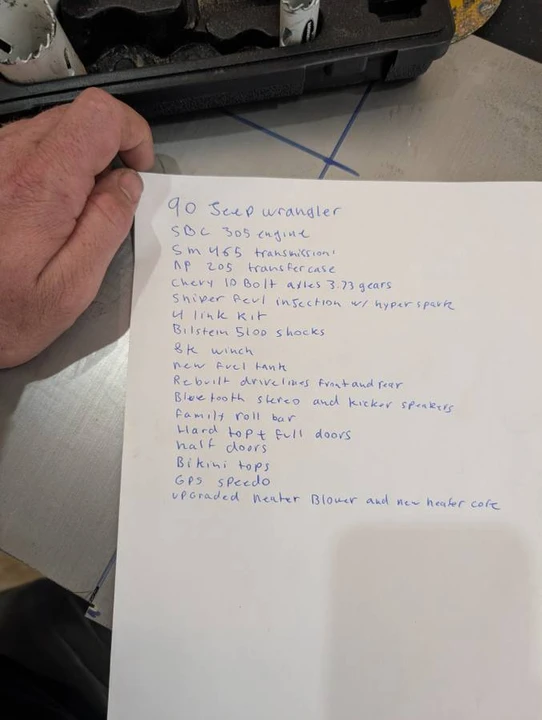 90 Jeep wrangler
SBC 305 engine
Sm 465 transmission
NP 205 transfercase
Chevy 10 Bolt axles 3.73 gears
Sniper Feul insection w/ hyperspark
4 link kit
Bilstein 5100 shocks
8k winch
new fuel tank
Rebuilt drivelines front and rear
Bluetooth stereo and kicker speakers
Family roll bar
Hard top + full doors
half doors
Bikini tops
GPS speedo
upgraded heater Blower and new heater core